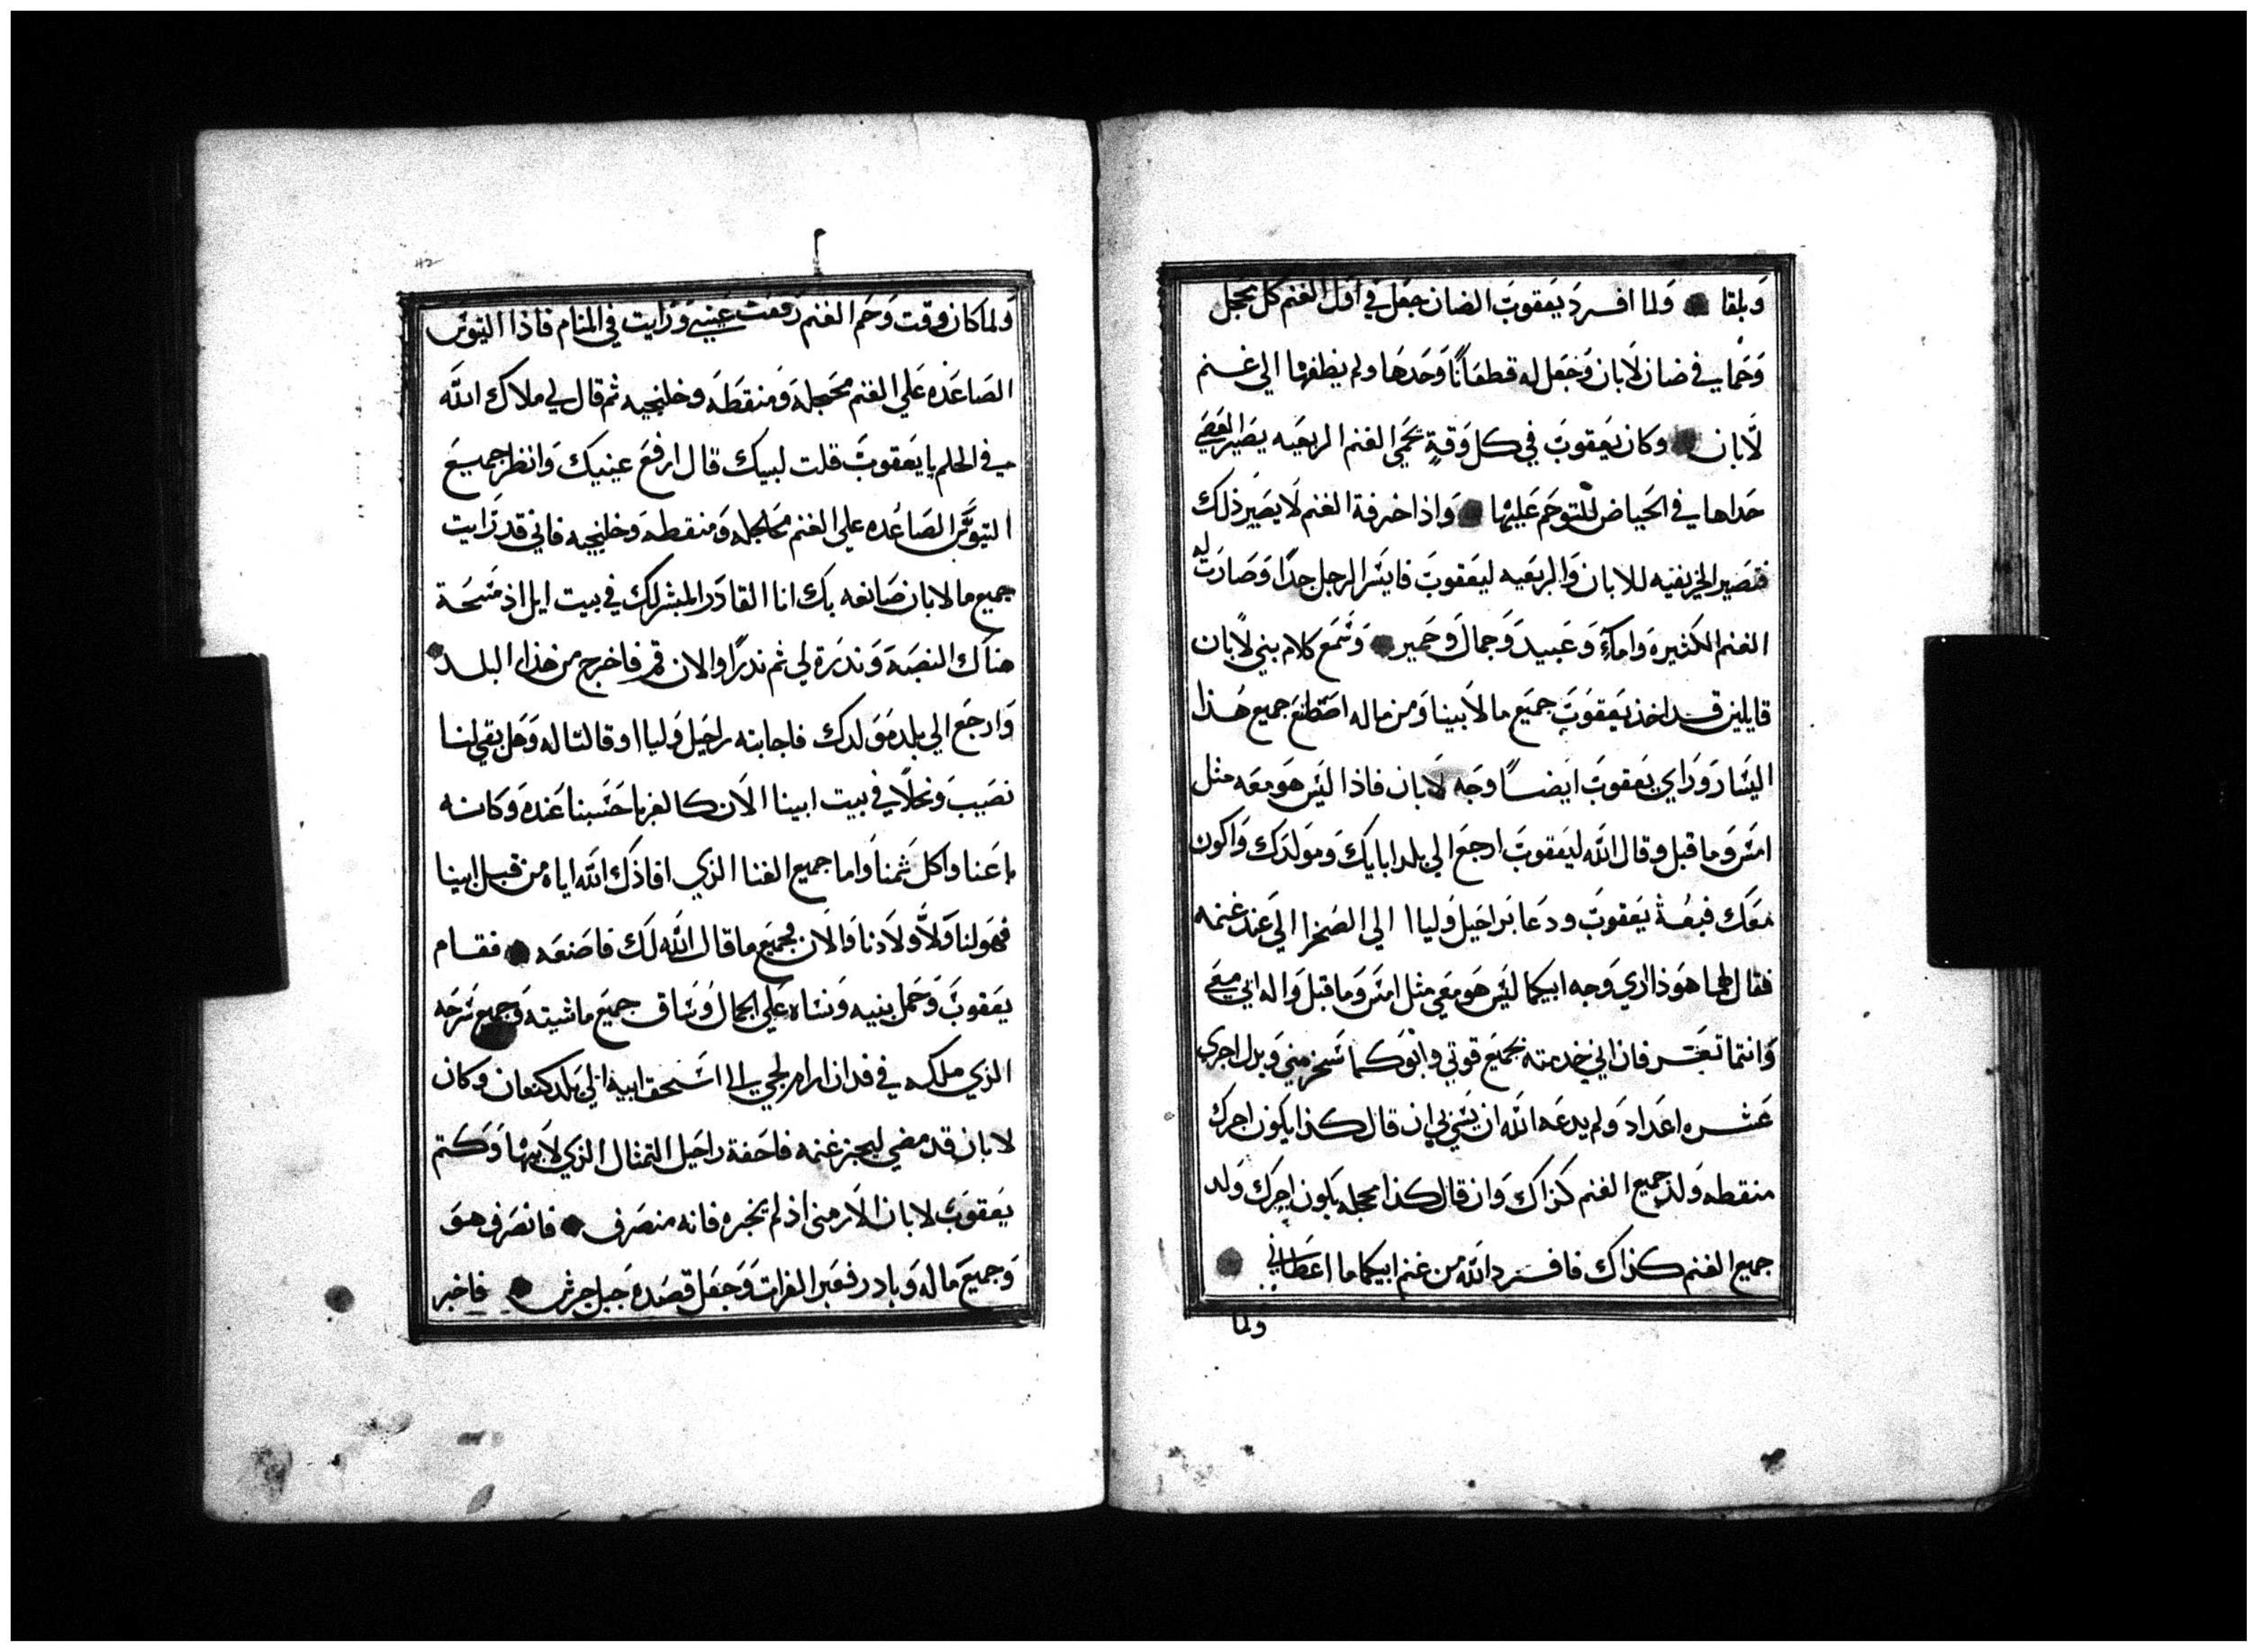 وبلقا ولما افرد يعقوب الضان جعل في اول الغنم كل محجل
وحماي في ضان لابان وجعل له قطعانًا وحدها ولم يظفها الي غنم
لابان وكان يعقوب في كل وقة تحمي الغنم الربعيه يصير العصي
حداها في الحياض للتوحم عليها واذا اخرفة الغنم لا يصير ذلك
فتصير الخريفيه للابان والربعيه ليعقوب فايسر الرجل جدًا وصارت له
الغنم الكثيره واماء وعبيد وجمال وحمير وسمع كلام بني لابان
قايلين قد اخذ يعقوب جميع ما لابينا ومن ماله اصطنع جميع هذا
اليسار وراي يعقوب ايضًا وجه لابان فاذا ليس هو معه مثل
امس وما قبل وقال الله ليعقوب ارجع الي بلد ابايك ومولدك واكون
معك فبعة يعقوب ودعا براحيل وليا ا الي الصخرا الي عند غنمه
فقال لهما هوذا اري وجه ابيكما ليس هو معي مثل امس وما قبل واله ابي معي
وانتما تعتر فان اني خدمته بجميع قوتي وابوكما سخر مني وبدل اجري
عشره اعداد ولم يدعه الله ان يسي بي ان قال كذا يكون اجرك
منقطه ولد جميع الغنم كذاك وان قال كذا محجله يكون اجرك ولد
جميع الغنم كذاك فافرد الله من غنم ابيكما ما اعطاني
ولما
م
42
ولما كان وقت وحم الغنم رفعت عيني ورايت في المنام فاذا التيوس
الصاعده علي الغنم محجله ومنقطه وخلنجيه ثم قال لي ملاك الله
في الحلم يا يعقوب قلت لبيك قال ارفع عينيك وانظر جميع
التيوس الصاعده علي الغنم محجله ومنقطه وخلنجيه فاني قد رايت
جميع ما لابان صانعه بك انا القادر المبشر لك في بيت ايل اذ مسحة
هناك النصبة وندرة لي ثم ندرًا والان قم فاخرج من هذا البلد
وارجع الي بلد مولدك فاجابته راحيل وليا ا وقالتا له وهل بقي لنا
نصيب ونحلا في بيت ابينا الان كالغربا حسبنا عنده وكانه
باعنا واكل ثمنا واما جميع الغنا الذي افاذك الله اياه من قبل ابينا
فهو لنا ولاولادنا والان بجميع ما قال الله لك فاصنعه فقام
يعقوب وحمل بنيه ونساه علي الجمال وساق جميع ماشيته وجميع سرحه
الذي ملكه في فدان ارام لجي الي اسحق ابيه الي بلد كنعان وكان
لابان قد مضي ليجز غنمه فاخفة راحيل التمثال الذي لابيها وكتم
يعقوب لابان الارمني اذ لم يخبره فانه منصرف فانصرف هو
وجميع ماله وبادر فعبر الفرات وجعل قصده جبل جرش فاخبر